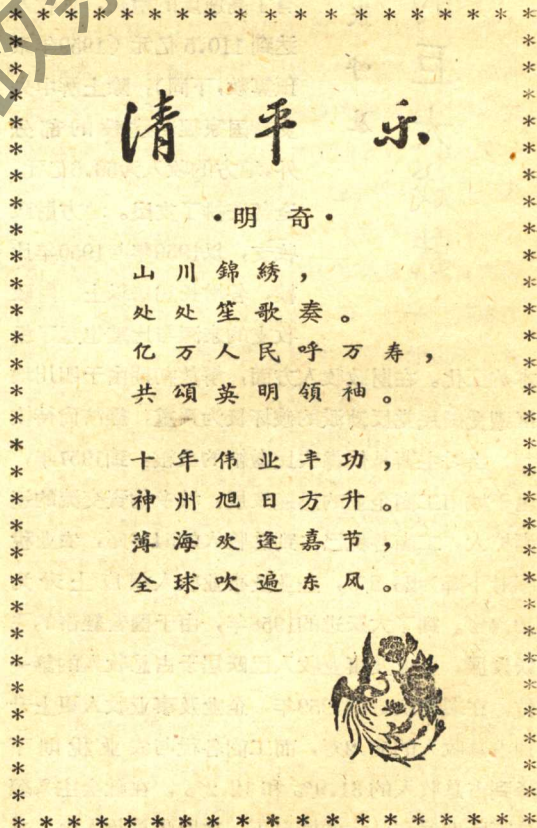 清平乐
·明奇·
山川錦綉，
处处笙歌奏。
亿万人民呼万寿，
共頌英明領袖。
十年伟业丰功，
神州旭日方升。
薄海欢逢嘉节，
全球吹遍东风。